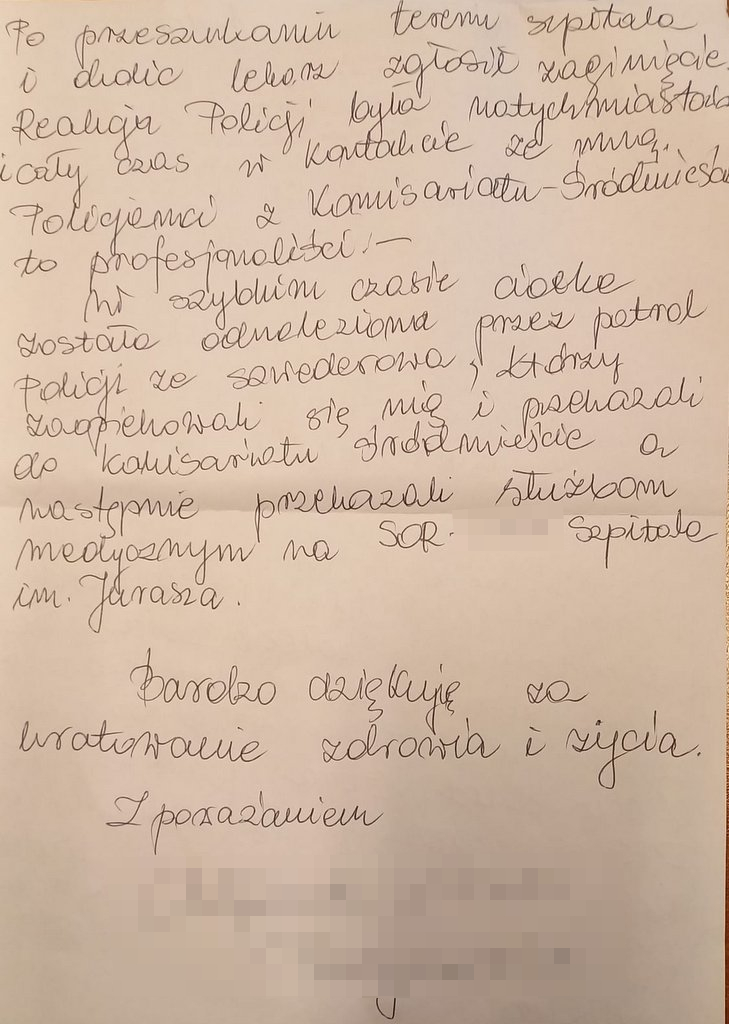 Po przeszukaniu terenu szpitala
i okolic lekarz zgłosił zaginięcie.
Reakcja Policji była natychmiastowa
i cały czas w kontakcie ze mną.
Policjanci z Komisariatu-Śródmieścia
to profesjonaliści.-
W szybkim czasie ciocia
została odnaleziona przez patrol
Policji ze szwederowa, którzy
zaopiekowali się nią i przekazali
do komisariatu śródmieście a
następnie przekazali służbom
medycznym na SOR. Szpitala
im. Jurasza.
Bardzo dziękuję za
uratowanie zdrowia i życia.
Z poważaniem